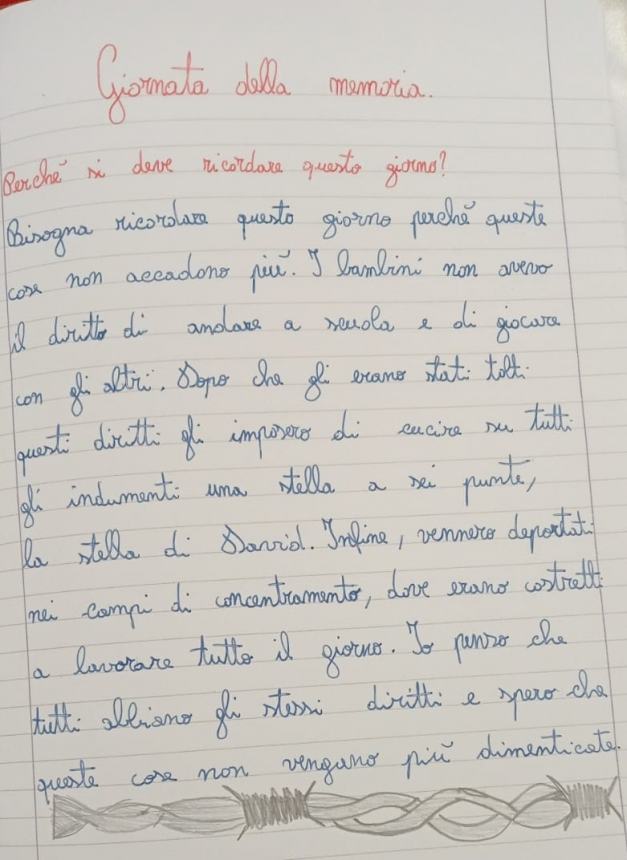 Giornata della memoria.
Perché si deve ricordare questo giorno?
Bisogna ricordare questo giorno perché queste
cose non accadono più. I bambini non avevo
il diritto di andare a scuola e di giocare
con gli altri. Dopo che gli erano stati tolti
questi diritti gli imposero di cucire su tutti
gli indumenti una stella a sei punte,
la stella di David. Infine, vennero deportati
nei campi di concentramento, dove erano costretti
a lavorare tutto il giorno. Io penso che
tutti abbiano gli stessi diritti e spero che
queste cose non vengano più dimenticate.